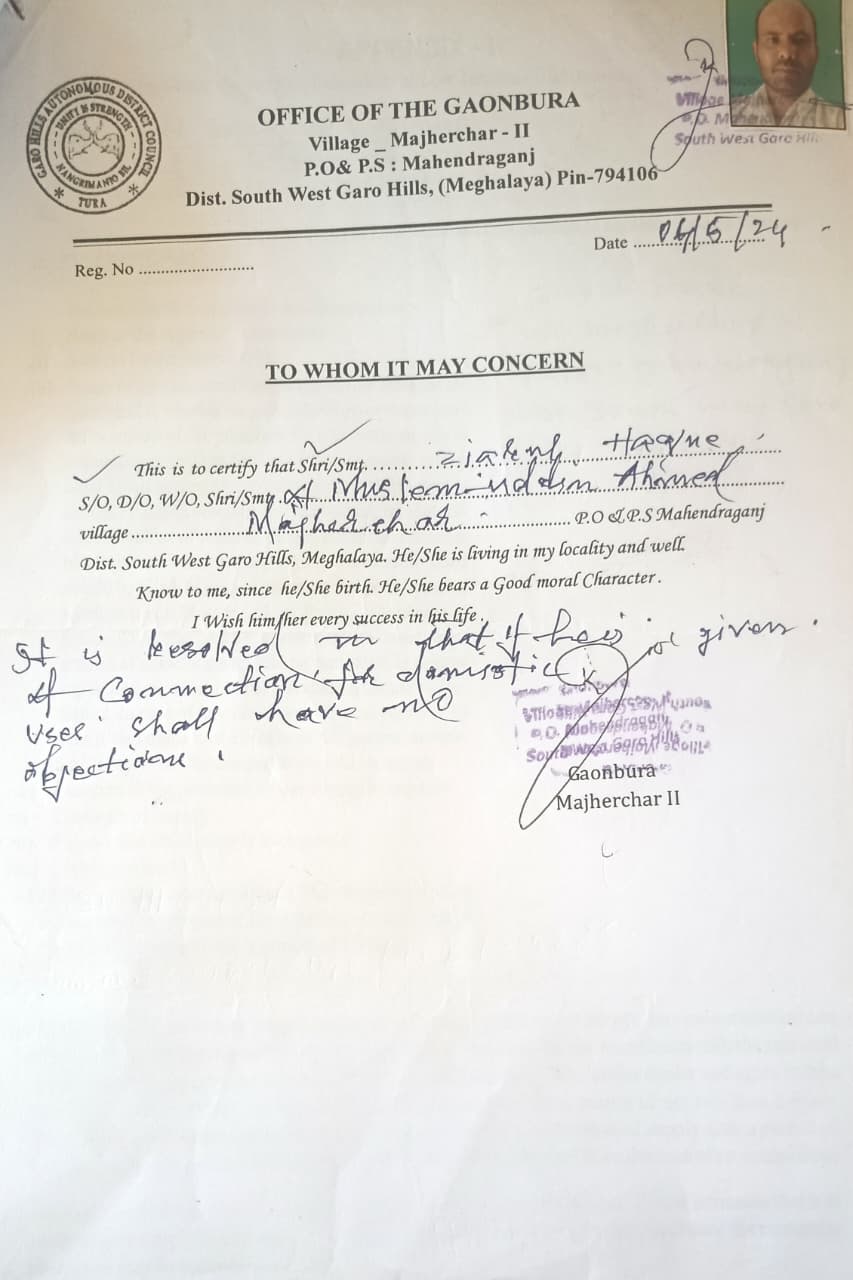 GARO HILLS AUTONOMOUS DISTRICT COUNCIL
UNITY IS STRENGTH
TURA
OFFICE OF THE GAONBURA
Village _ Majherchar - II
P.O& P.S : Mahendraganj
Dist. South West Garo Hills, (Meghalaya) Pin-794106
Village
P.O. M
South West Garo Hill
Date ..... 06/5/24
Reg. No ..........................
TO WHOM IT MAY CONCERN
This is to certify that Shri/Smt. ......... Haque
S/O, D/O, W/O, Shri/Smt. of Muslemuddin Ahmed
village ......................... Majherchar ..................... P.O & P.S Mahendraganj
Dist. South West Garo Hills, Meghalaya. He/She is living in my locality and well.
Know to me, since he/She birth. He/She bears a Good moral Character.
I Wish him/her every success in his life.
It is resolved that if given.
of Connection for domistic
uses shall have no
objection.
P.O. Mahendraganj
South West Garo Hills
Gaonbura
Majherchar II